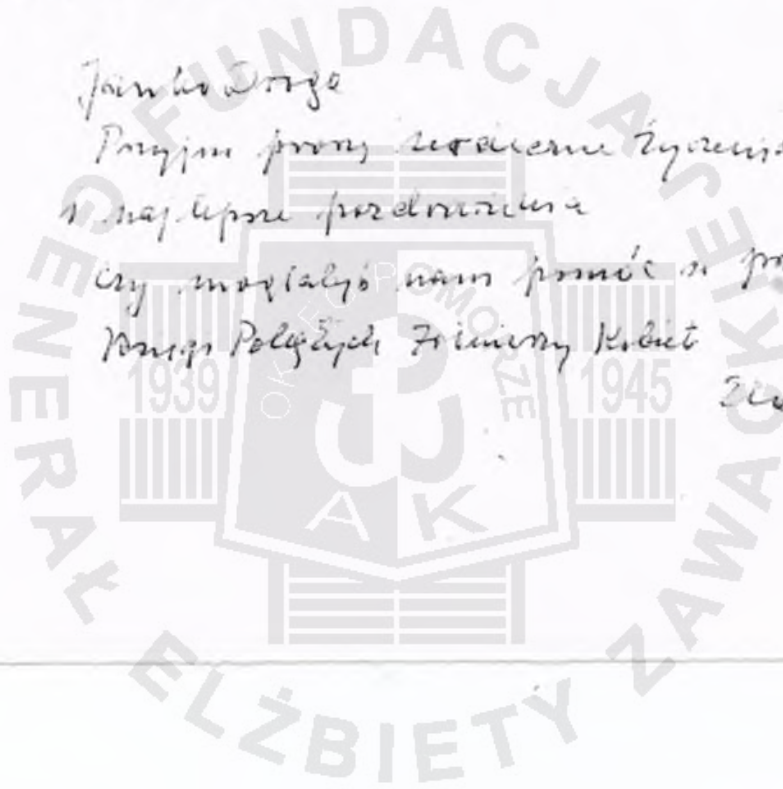 Janko Droga
Przyjm proszę serdeczne życzenia
i najlepsze pozdrowienia
czy mogłabyś nam pomóc w
Poległych Żołnierzy Kobiet
FUNDACJA GENERAŁ ELŻBIETY ZAWACKIEJ
OKRĘG POMORZE
1939
1945
AK